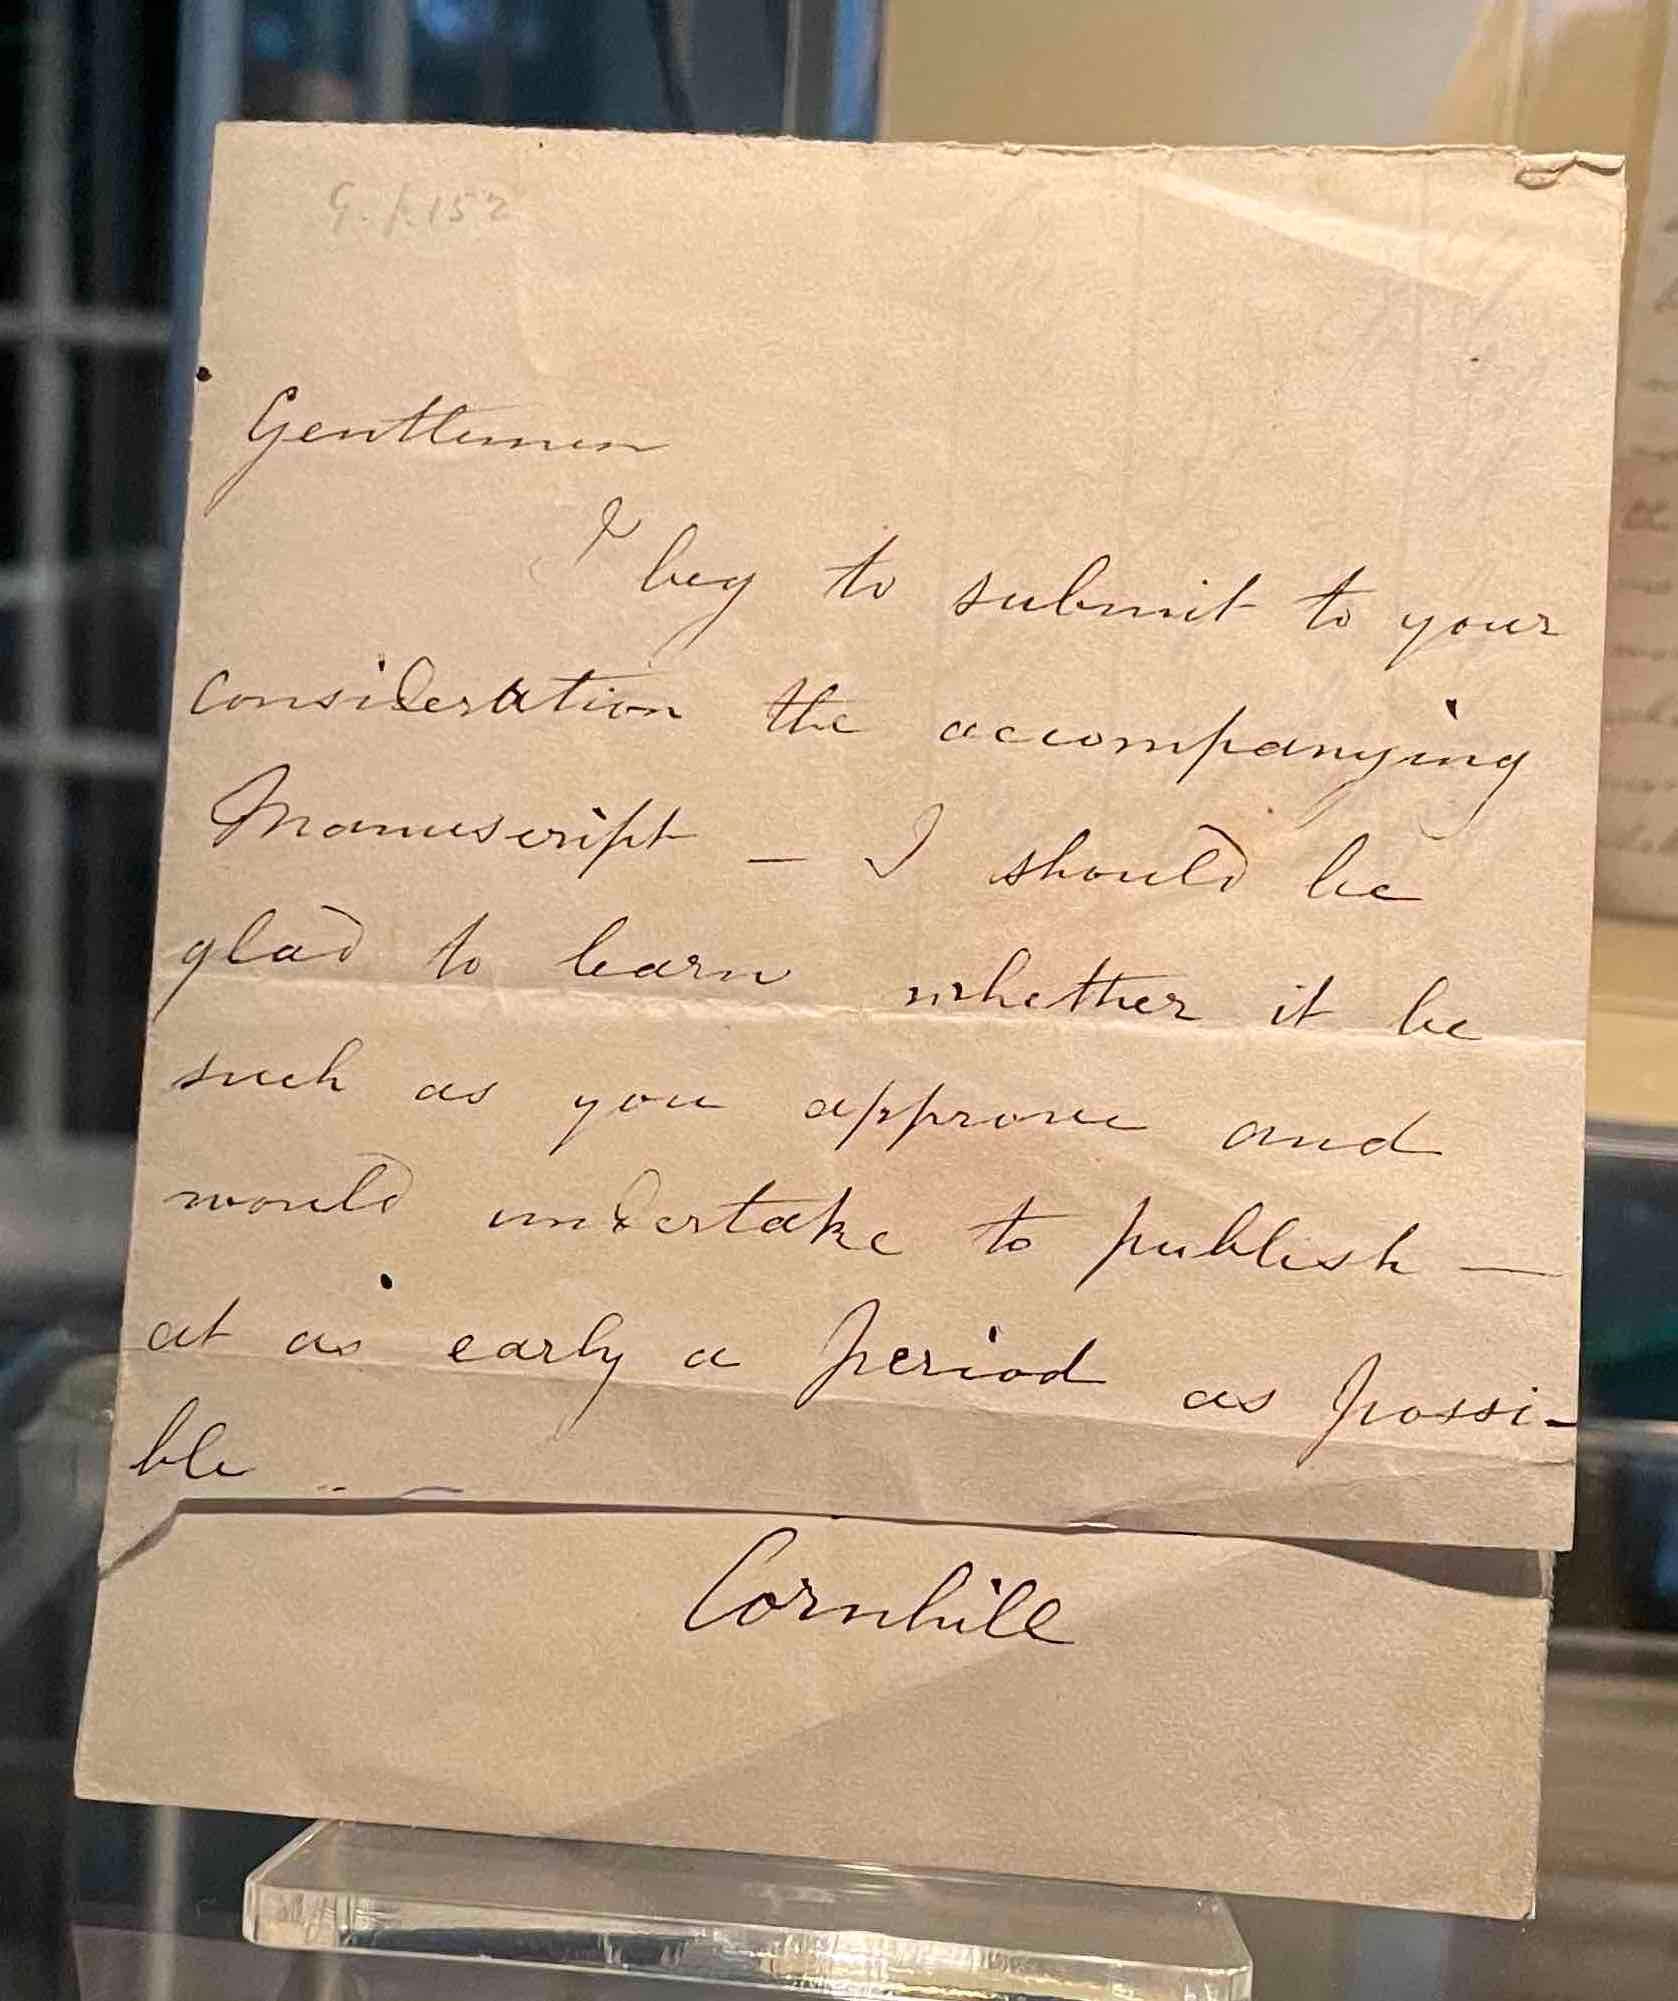 G. p. 152
Gentlemen
I beg to submit to your
consideration the accompanying
Manuscript — I should be
glad to learn whether it be
such as you approve and
would undertake to publish —
at as early a period as possi-
ble
Cornhill